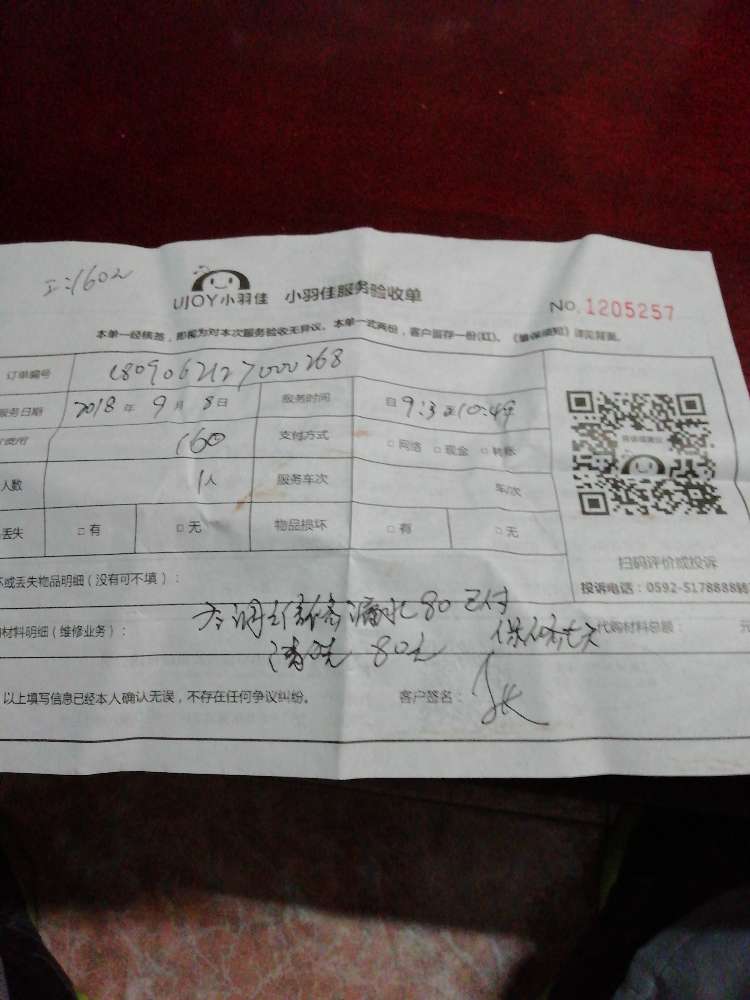 工:1602
UJOY小羽佳 小羽佳服务验收单
NO.1205257
本单一经核签，即视为对本次服务验收无异议。本单一式两份，客户留存一份(红)。《售保须知》详见背面。
订单编号 1809062127000268
服务日期 2018年9月8日 服务时间 自9:3 至10:49
费用 160 支付方式 □网络 □现金 □转账
人数 1人 服务车次 车/次
丢失 □有 □无 物品损坏 □有 □无
扫码评价或投诉
坏或丢失物品明细（没有可不填）：
投诉电话：0592-5178888转
空调 维修漏水80 已付
材料明细（维修业务）： 保修七天 代购材料总额： 元
清洗 80元
以上填写信息已经本人确认无误，不存在任何争议纠纷。 客户签名：